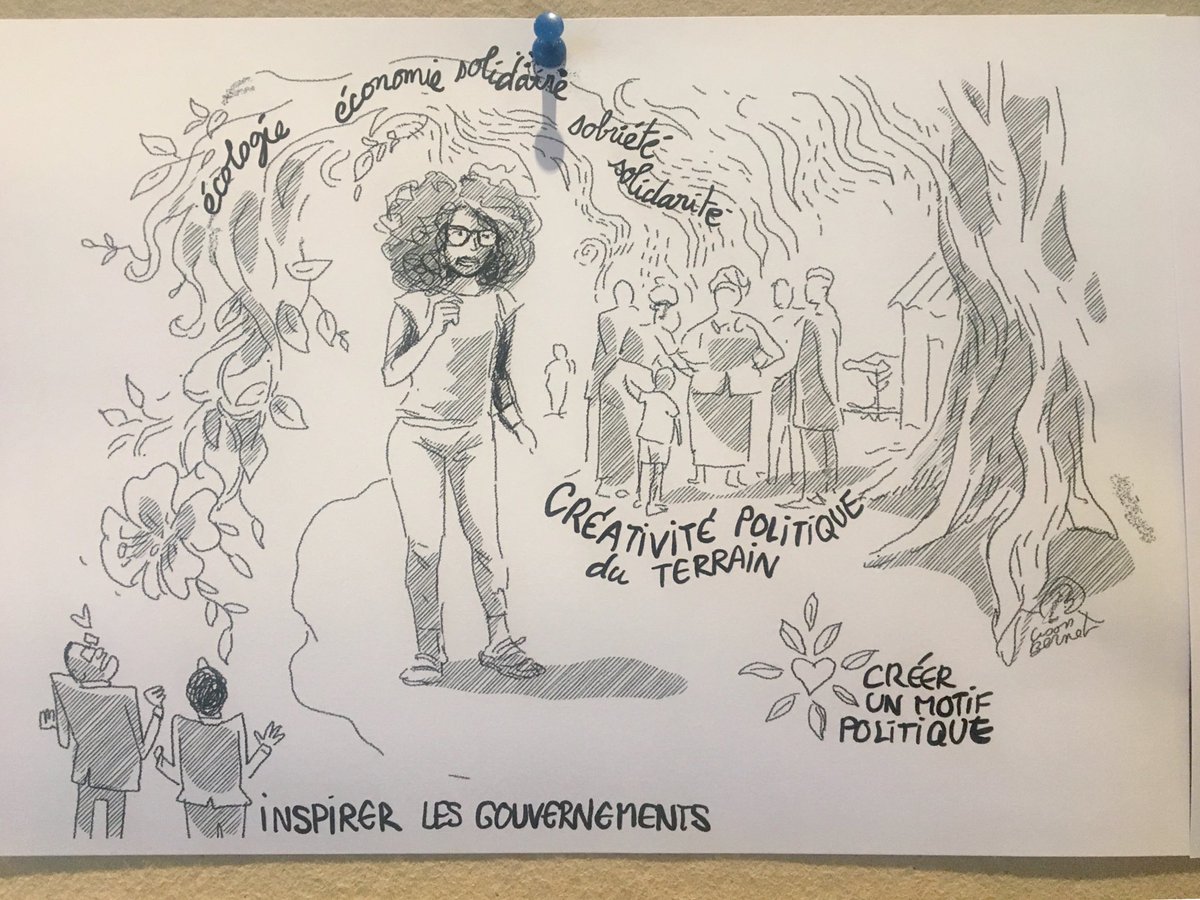 écologie
économie solidaire
sobriété
solidarité
CRÉATIVITÉ POLITIQUE
du TERRAIN
CRÉER
UN MOTIF
POLITIQUE
INSPIRER LES GOUVERNEMENTS